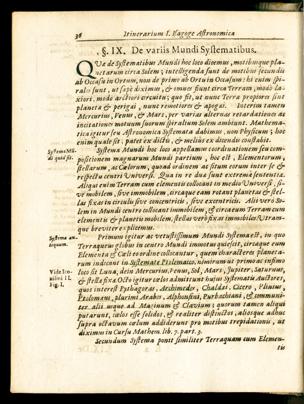 36 Itinerarium I. Isagoge Astronomica
§. IX. De variis Mundi Systematibus.
Quæ de Systematibus Mundi hoc loco dicemus, motibusque planetarum circa Solem; intelligenda sunt de motibus secundis
ab Occasu in Ortum, non de primo ab Ortu in Occasum: hi enim spirales
sunt, ut sæpè diximus, & omnes fiunt circa Terram, modò laxiori,
modò arctiori circuitu; quo fit, ut nunc Terræ propiores sint
planetæ & perigæi, nunc remotiores & apogæi. Interim tamen
Mercurius, Venus, & Mars, per varias alternas retardationes ac
incitationes motuum suorum spiralium Solem ambiunt. Mathematica
igitur seu Astronomica Systemata dabimus, non Physicum; hoc
enim quale sit, patet ex dictis, & meliùs ex dicendis constabit.
Systema Mundi quid sit.
Systema Mundi hoc loco appellamus coordinationem seu compositionem
magnarum Mundi partium, hoc est, Elementorum,
stellarum, ac Cælorum, quoad ordinem ac situm eorum inter se &
respectu centri Universi. Qua in re duæ sunt extremæ sententiæ.
Aliqui enim Terram cum elementis collocant in medio Universi, sive
mobilem, sive immobilem, circaque eam rotant planetas & stellas
fixas in circulis sive concentricis, sive excentricis. Alii verò Solem
in Mundi centro collocant immobilem, & circa eum Terram cum
elementis & planetis mobilem, stellas verò fixas immobiles. Utramque
breviter explicemus.
Systema antiquum.
Primum igitur ac vetustissimum Mundi Systema est, in quo
Terraqueus globus in centro Mundi immotus quiescit, circaque eum
Vide Iconismi I. Fig. I.
Elementa & Cæli eo ordine collocantur, quem characteres planetarum
indicant in Systemate Ptolemaico, nimirum ut primo ac infimo
loco sit Luna, dein Mercurius, Venus, Sol, Mars, Jupiter, Saturnus,
& stellæ fixæ. Octo igitur cælos admittunt hujus Systematis Auctores,
quos inter est Pythagoras, Archimedes, Chaldæi, Cicero, Plinius,
Ptolemæus, plurimi Arabes, Alphonsini, Purbachius, & communiter
alii usque ad Maginum & Clavium; quorum tamen aliqui
putarunt, cælos esse solidos, & realiter distinctos, aliosque adhuc
supra octavum cælum addiderunt pro motibus trepidationis, ut
diximus in Cursu Mathem. lib. 7. part. 3.
Secundum Systema ponit similiter Terraquam cum Elemen-
tis